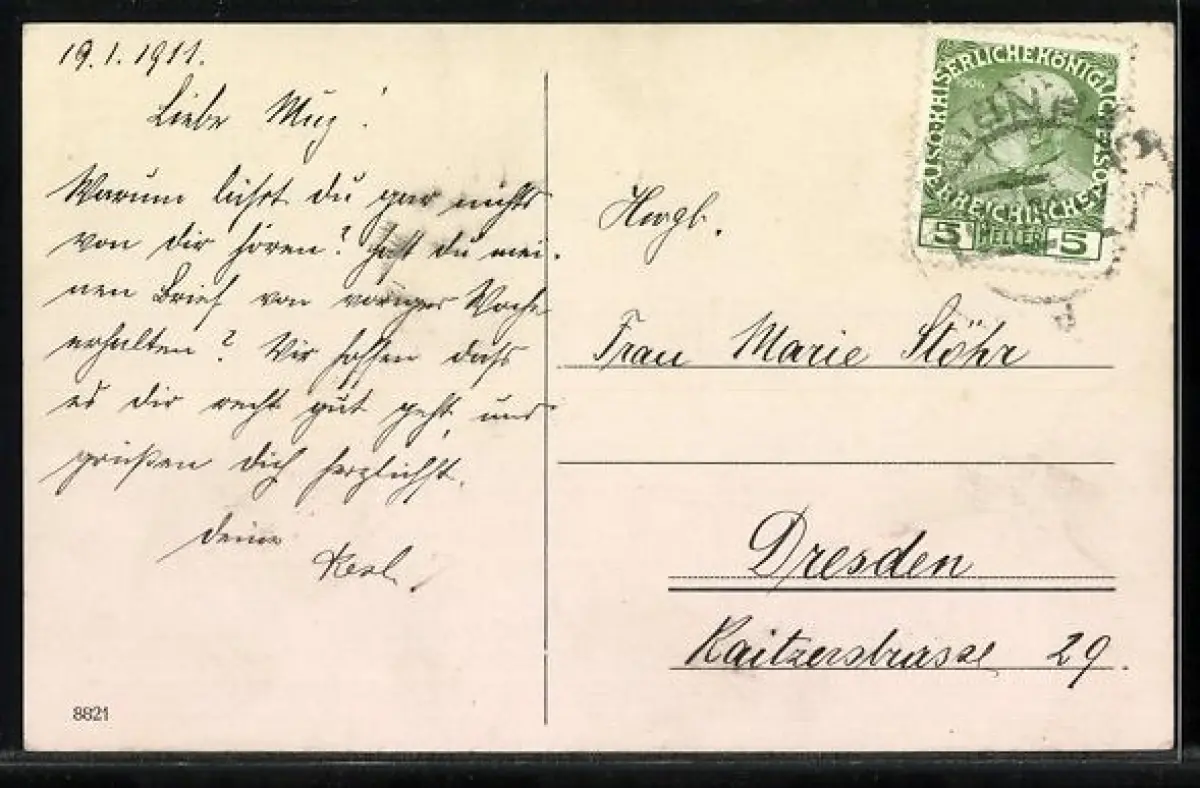 19.1.1911.
Liebe Muz!
Warum läßt du gar nichts
von dir hören? Hast du mei-
nen Brief von voriger Woche
erhalten? Wir hoffen dass
es dir recht gut geht, und
grüßen dich herzlichst.
deine
Resl.
8821
KAISERLICHE KÖNIGLICHE
ÖSTERREICHISCHE POST
5 HELLER 5
Frau Marie Stöhr
Dresden
Kaitzerstrasse 29.